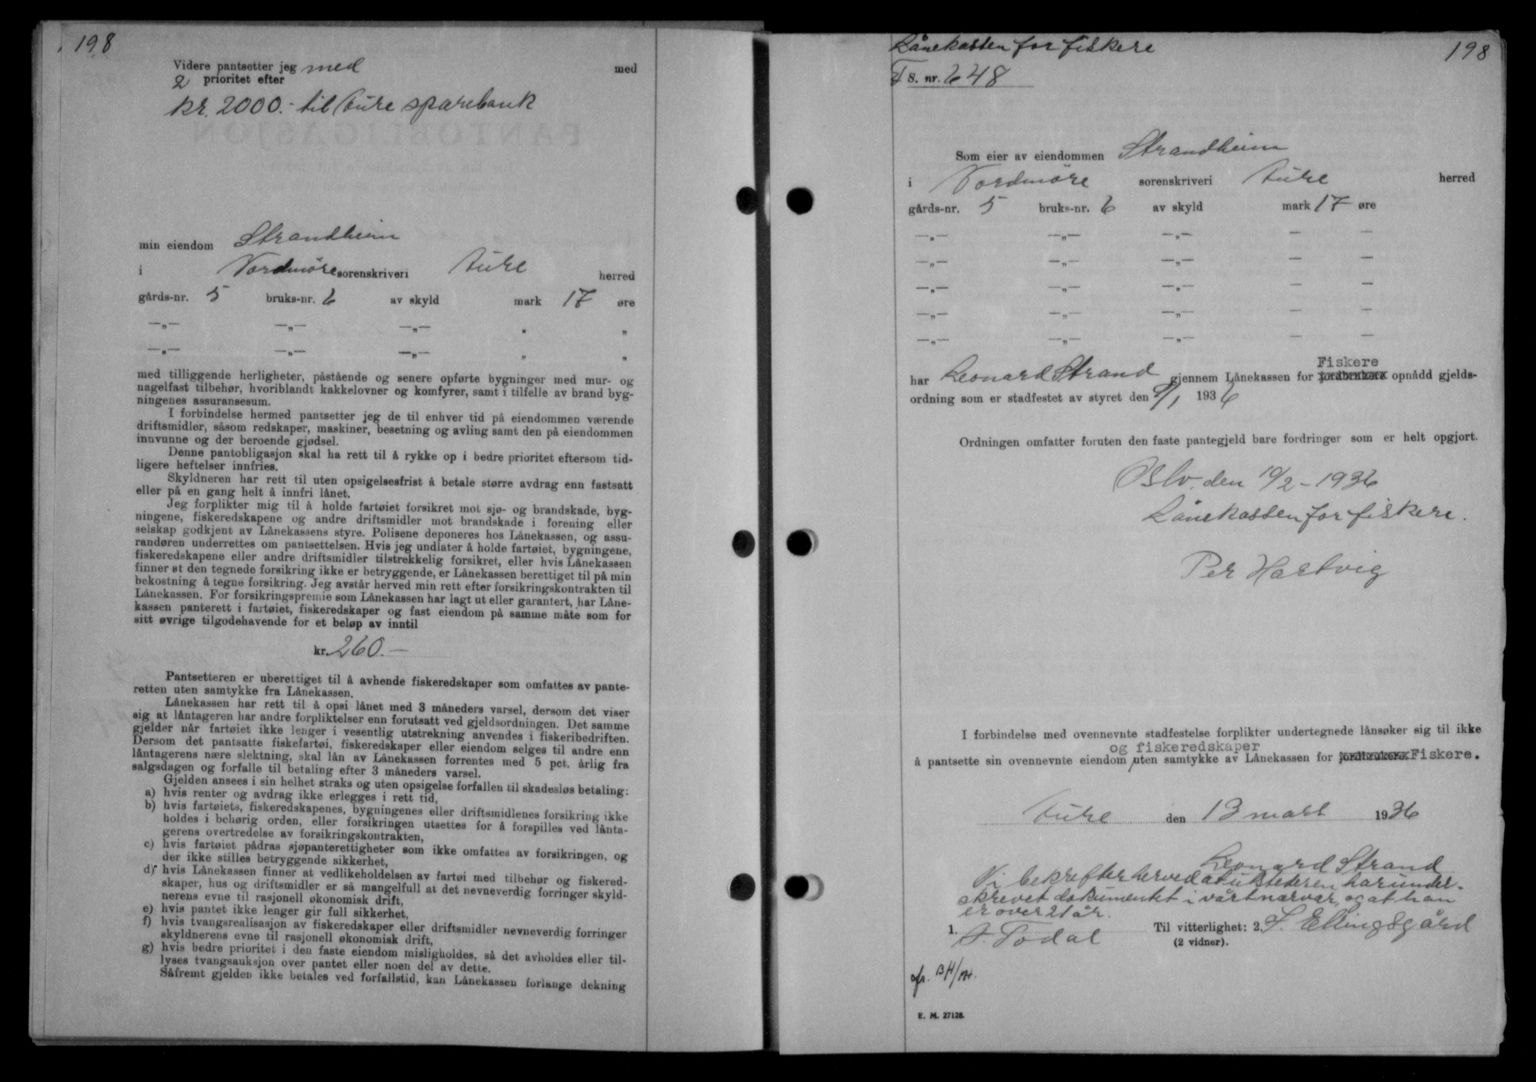 198
Videre pantsetter jeg med med
2 prioritet efter
kr. 2000.- til Aure sparebank
min eiendom Strandheim
i Nordmöre sorenskriveri Aure herred
gårds-nr. 5 bruks-nr. 6 av skyld mark 17 øre
—„— —„— —„— „ „
—„— —„— —„— „ „
med tilliggende herligheter, påstående og senere opførte bygninger med mur- og
nagelfast tilbehør, hvoriblandt kakkelovner og komfyrer, samt i tilfelle av brand byg-
ningenes assuransesum.
I forbindelse hermed pantsetter jeg de til enhver tid på eiendommen værende
driftsmidler, såsom redskaper, maskiner, besetning og avling samt den på eiendommen
innvunne og der beroende gjødsel.
Denne pantobligasjon skal ha rett til å rykke op i bedre prioritet eftersom tid-
ligere heftelser innfries.
Skyldneren har rett til uten opsigelsesfrist å betale større avdrag enn fastsatt
eller på en gang helt å innfri lånet.
Jeg forplikter mig til å holde fartøiet forsikret mot sjø- og brandskade, byg-
ningene, fiskeredskapene og andre driftsmidler mot brandskade i forening eller
selskap godkjent av Lånekassens styre. Polisene deponeres hos Lånekassen, og assu-
randøren underrettes om pantsettelsen. Hvis jeg undlater å holde fartøiet, bygningene,
fiskeredskapene eller andre driftsmidler tilstrekkelig forsikret, eller hvis Lånekassen
finner at den tegnede forsikring ikke er betryggende, er Lånekassen berettiget til på min
bekostning å tegne forsikring. Jeg avstår herved min rett efter forsikringskontrakten til
Lånekassen. For forsikringspremie som Lånekassen har lagt ut eller garantert, har Låne-
kassen panterett i fartøiet, fiskeredskaper og fast eiendom på samme måte som for
sitt øvrige tilgodehavende for et beløp av inntil
kr. 260.-
Pantsetteren er uberettiget til å avhende fiskeredskaper som omfattes av pante-
retten uten samtykke fra Lånekassen.
Lånekassen har rett til å opsi lånet med 3 måneders varsel, dersom det viser
sig at låntageren har andre forpliktelser enn forutsatt ved gjeldsordningen. Det samme
gjelder når fartøiet ikke lenger i vesentlig utstrekning anvendes i fiskeribedriften.
Dersom det pantsatte fiskefartøi, fiskeredskaper eller eiendom selges til andre enn
låntagerens nære slektning, skal lån av Lånekassen forrentes med 5 pct. årlig fra
salgsdagen og forfalle til betaling efter 3 måneders varsel.
Gjelden ansees i sin helhet straks og uten opsigelse forfallen til skadesløs betaling:
a) hvis renter og avdrag ikke erlegges i rett tid,
b) hvis fartøiets, fiskeredskapenes, bygningenes eller driftsmidlenes forsikring ikke
holdes i behørig orden, eller forsikringen utsettes for å forspilles ved lånta-
gerens overtredelse av forsikringskontrakten,
c) hvis fartøiet pådras sjøpanterettigheter som ikke omfattes av forsikringen, og
der ikke stilles betryggende sikkerhet,
d) hvis Lånekassen finner at vedlikeholdelsen av fartøi med tilbehør og fiskered-
skaper, hus og driftsmidler er så mangelfull at det nevneverdig forringer skyld-
nerens evne til rasjonell økonomisk drift,
e) hvis pantet ikke lenger gir full sikkerhet,
f) hvis tvangsrealisasjon av fiskeredskaper eller driftsmidler nevneverdig forringer
skyldnerens evne til rasjonell økonomisk drift,
g) hvis bedre prioritet i den faste eiendom misligholdes, så det avholdes eller til-
lyses tvangsauksjon over pantet eller noen del av dette.
Såfremt gjelden ikke betales ved forfallstid, kan Lånekassen forlange dekning
Lånekassen for fiskere 198
F S. nr. 648
Som eier av eiendommen Strandheim
i Nordmöre sorenskriveri Aure herred
gårds-nr. 5 bruks-nr. 6 av skyld mark 17 øre
—„— —„— —„— — —
—„— —„— —„— — —
—„— —„— —„— — —
—„— —„— —„— — —
—„— —„— —„— — —
Fiskere
har Leonard Strand gjennem Lånekassen for jordbrukere opnådd gjelds-
ordning som er stadfestet av styret den /1 1936
Ordningen omfatter foruten den faste pantegjeld bare fordringer som er helt opgjort.
Oslo, den 10/2-1936
Lånekassen for fiskere.
Per Hartvig
I forbindelse med ovennevnte stadfestelse forplikter undertegnede lånsøker sig til ikke
og fiskeredskaper
å pantsette sin ovennevnte eiendom /uten samtykke av Lånekassen for jordbrukere Fiskere.
Aure den 13 mars 1936
Leonard Strand
Vi bekrefter herved at utstederen har under-
skrevet dokumentet i vårt nærvær, og at han
er over 21 år.
1. J. Todal Til vitterlighet: 2. S. Ellingsgård
(2 vidner).
E. M. 27128.